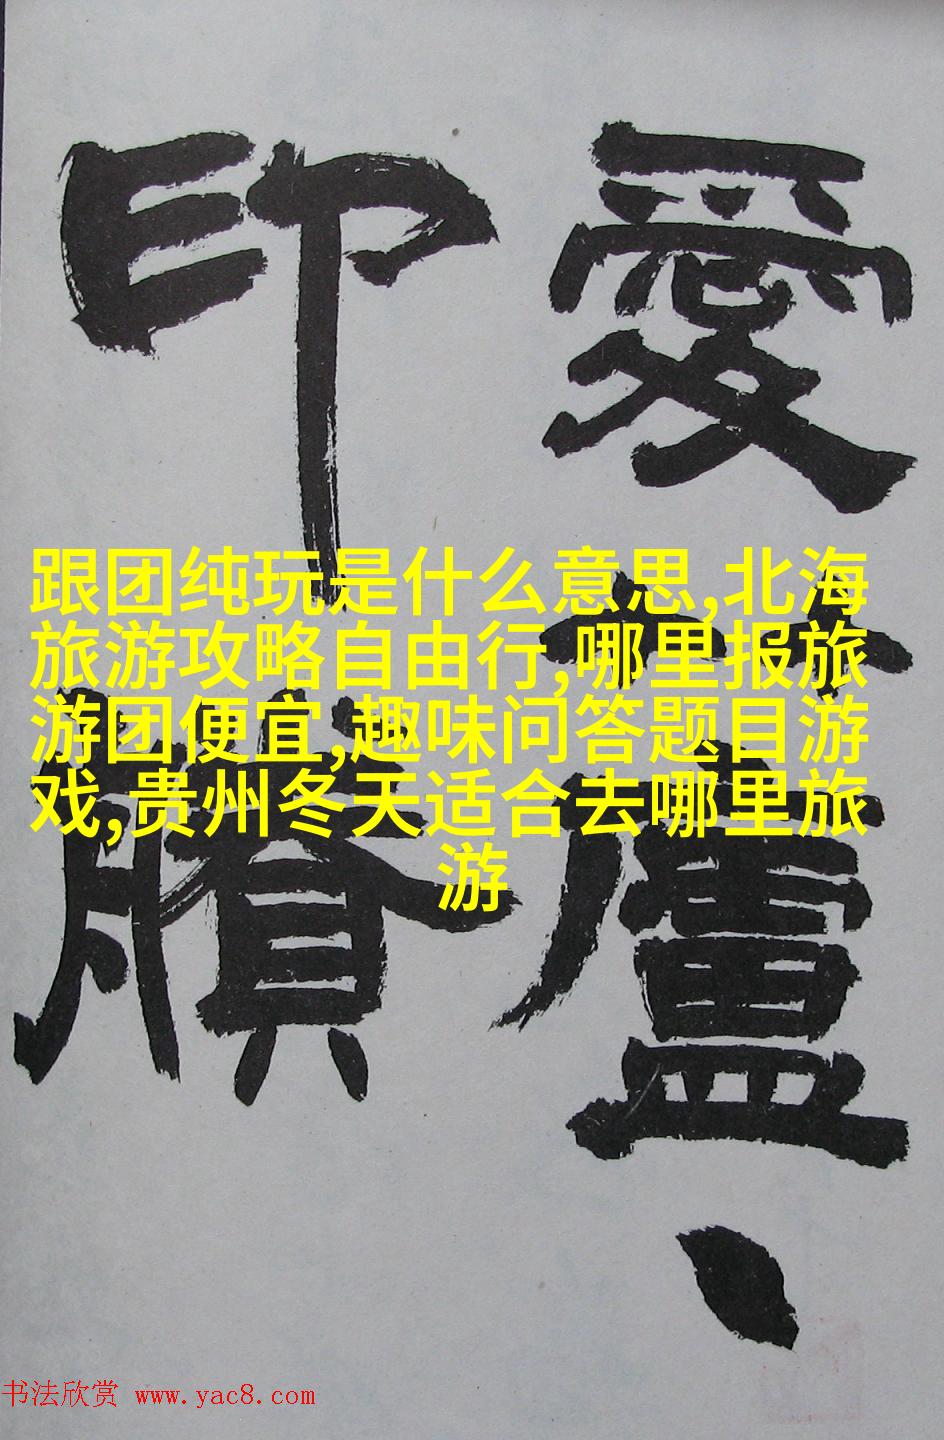 愛
印
跟团纯玩是什么意思,北海
旅游攻略自由行,哪里报旅
游团便宜,趣味问答题目游
戏,贵州冬天适合去哪里旅
游
书法欣赏 www.yac8.com